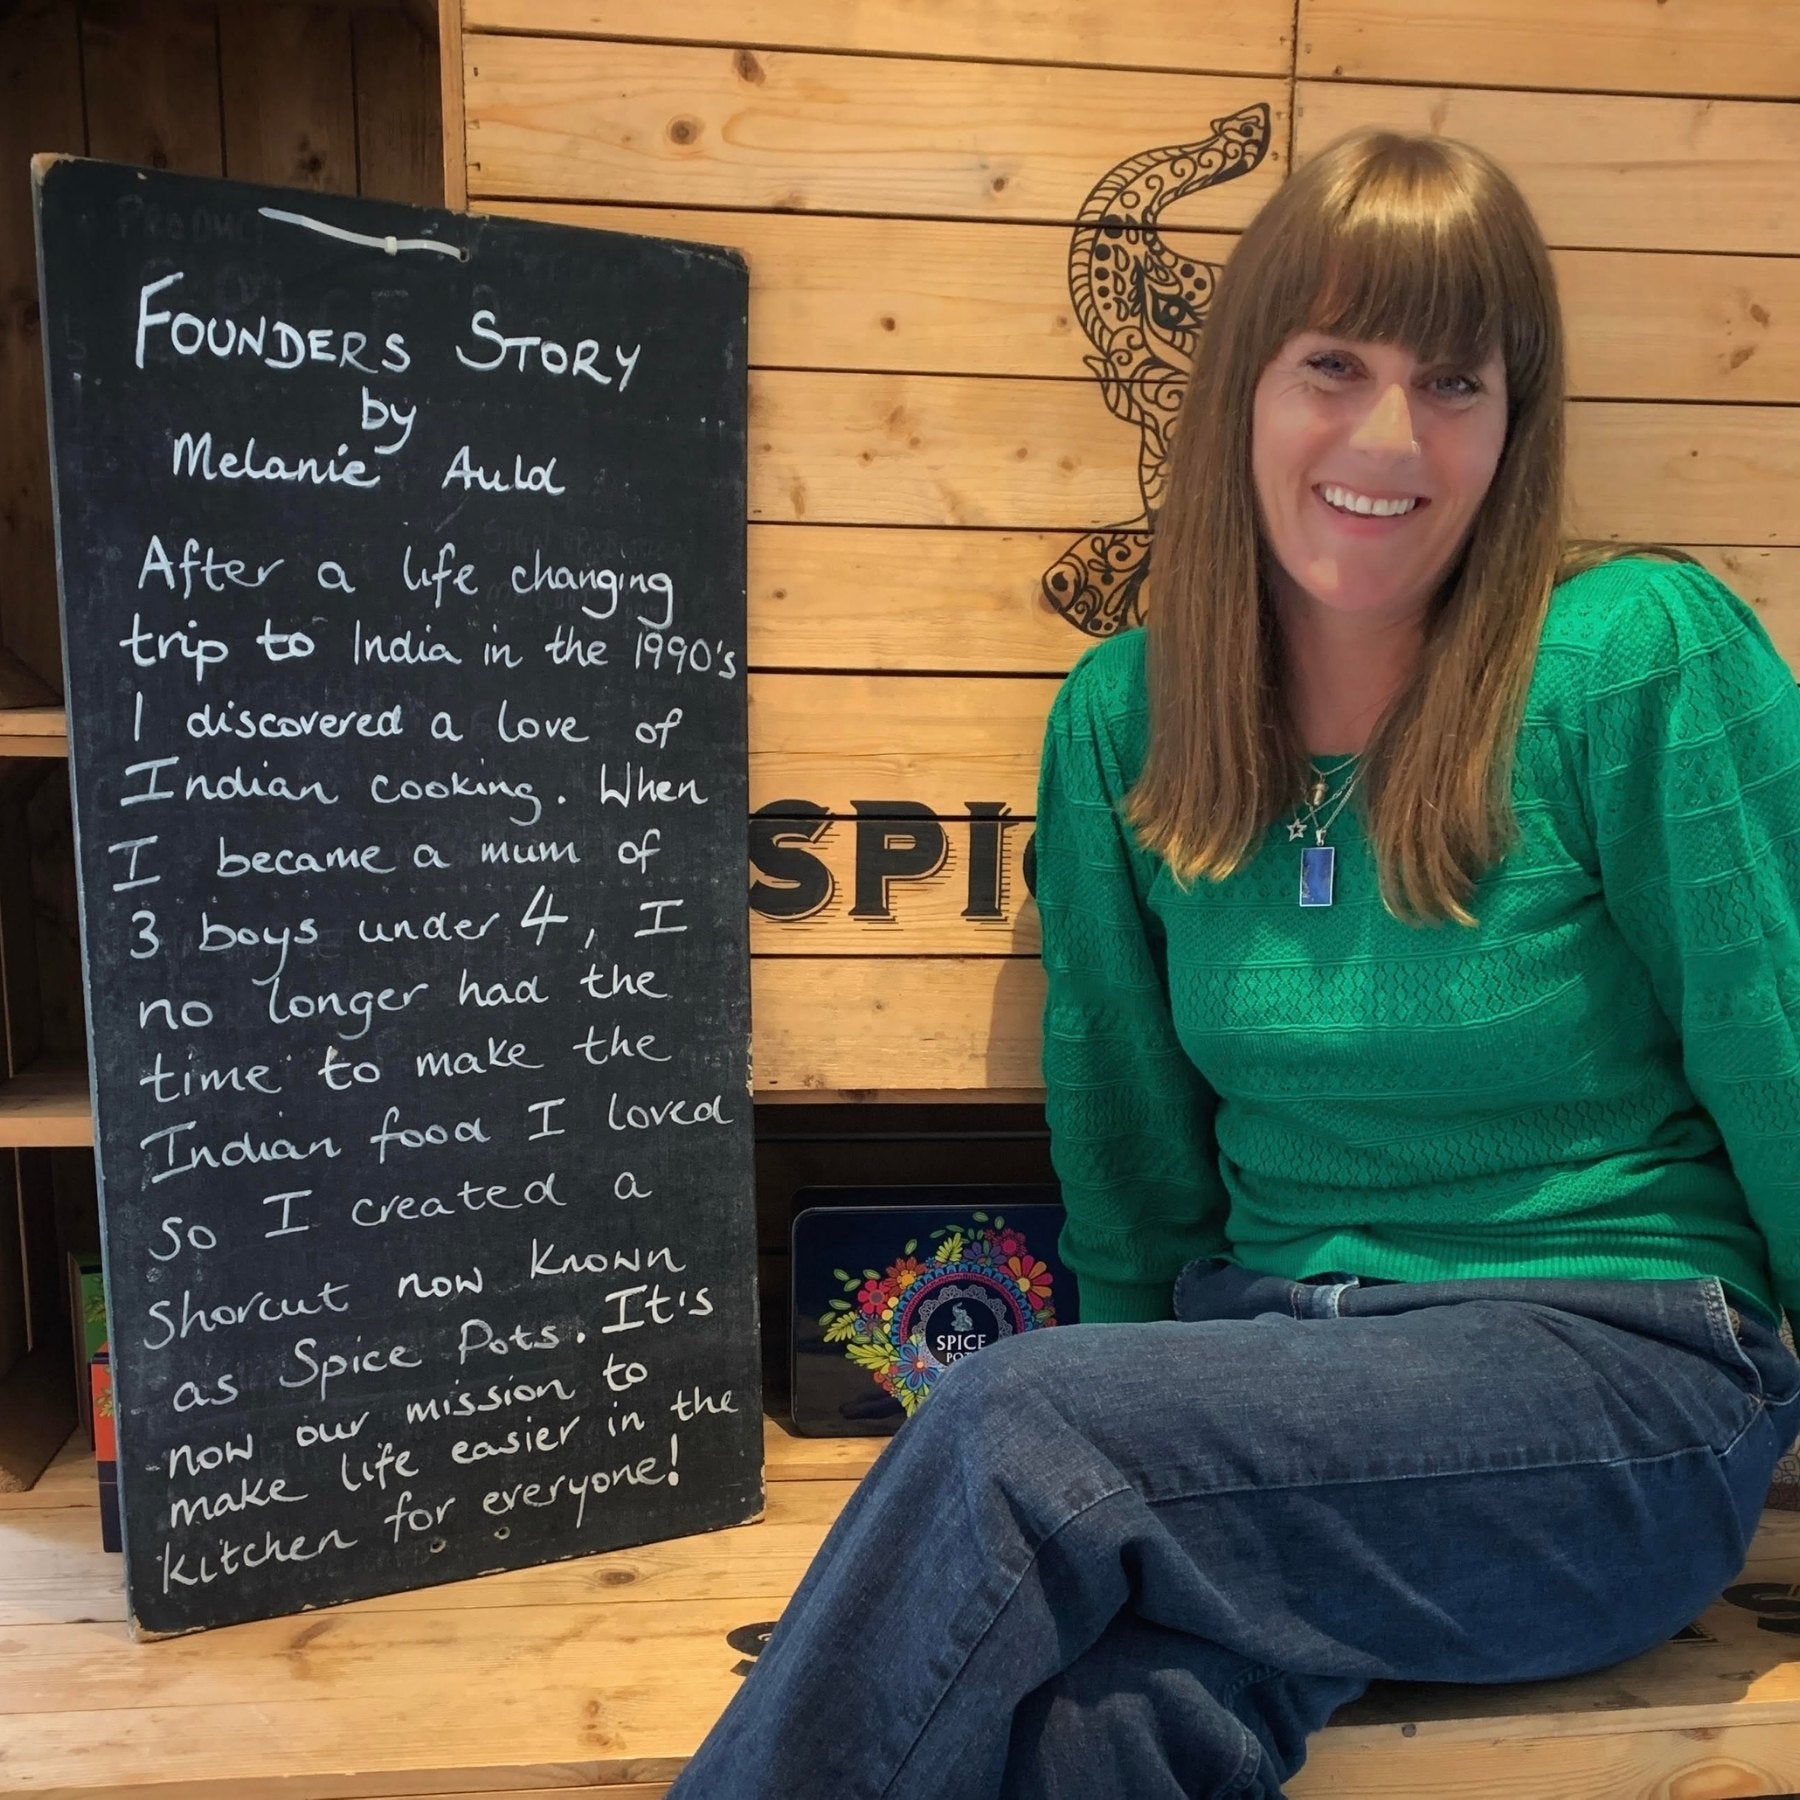 FOUNDERS STORY
by
Melanie Auld
After a life changing
trip to India in the 1990's
I discovered a love of
Indian cooking. When
I became a mum of
3 boys under 4, I
no longer had the
time to make the
Indian food I loved
so I created a
shorcut now known
as Spice Pots. It's
now our mission to
make life easier in the
kitchen for everyone!
SPICE